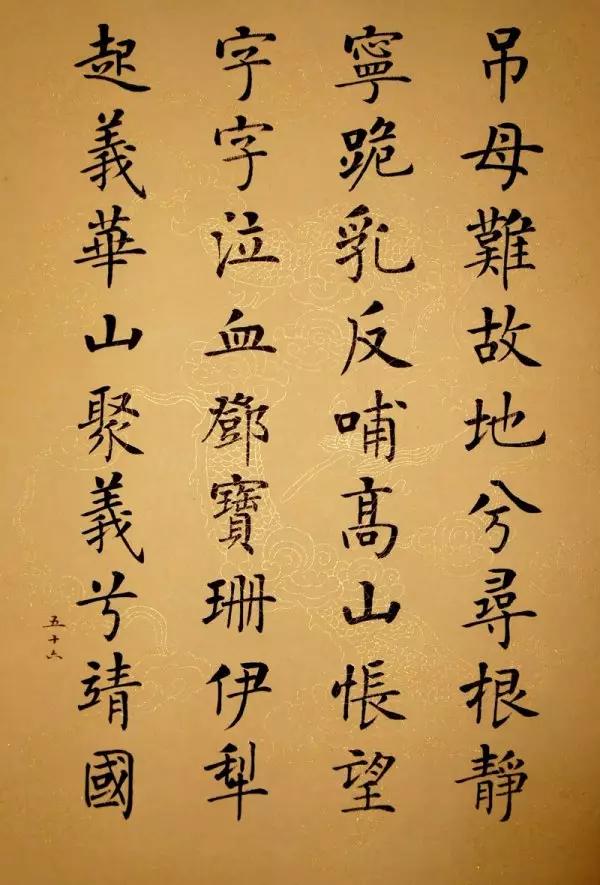 吊母難故地兮尋根靜
寧跪乳反哺高山悵望
字字泣血鄧寶珊伊犁
起義華山聚義兮靖國
五十六